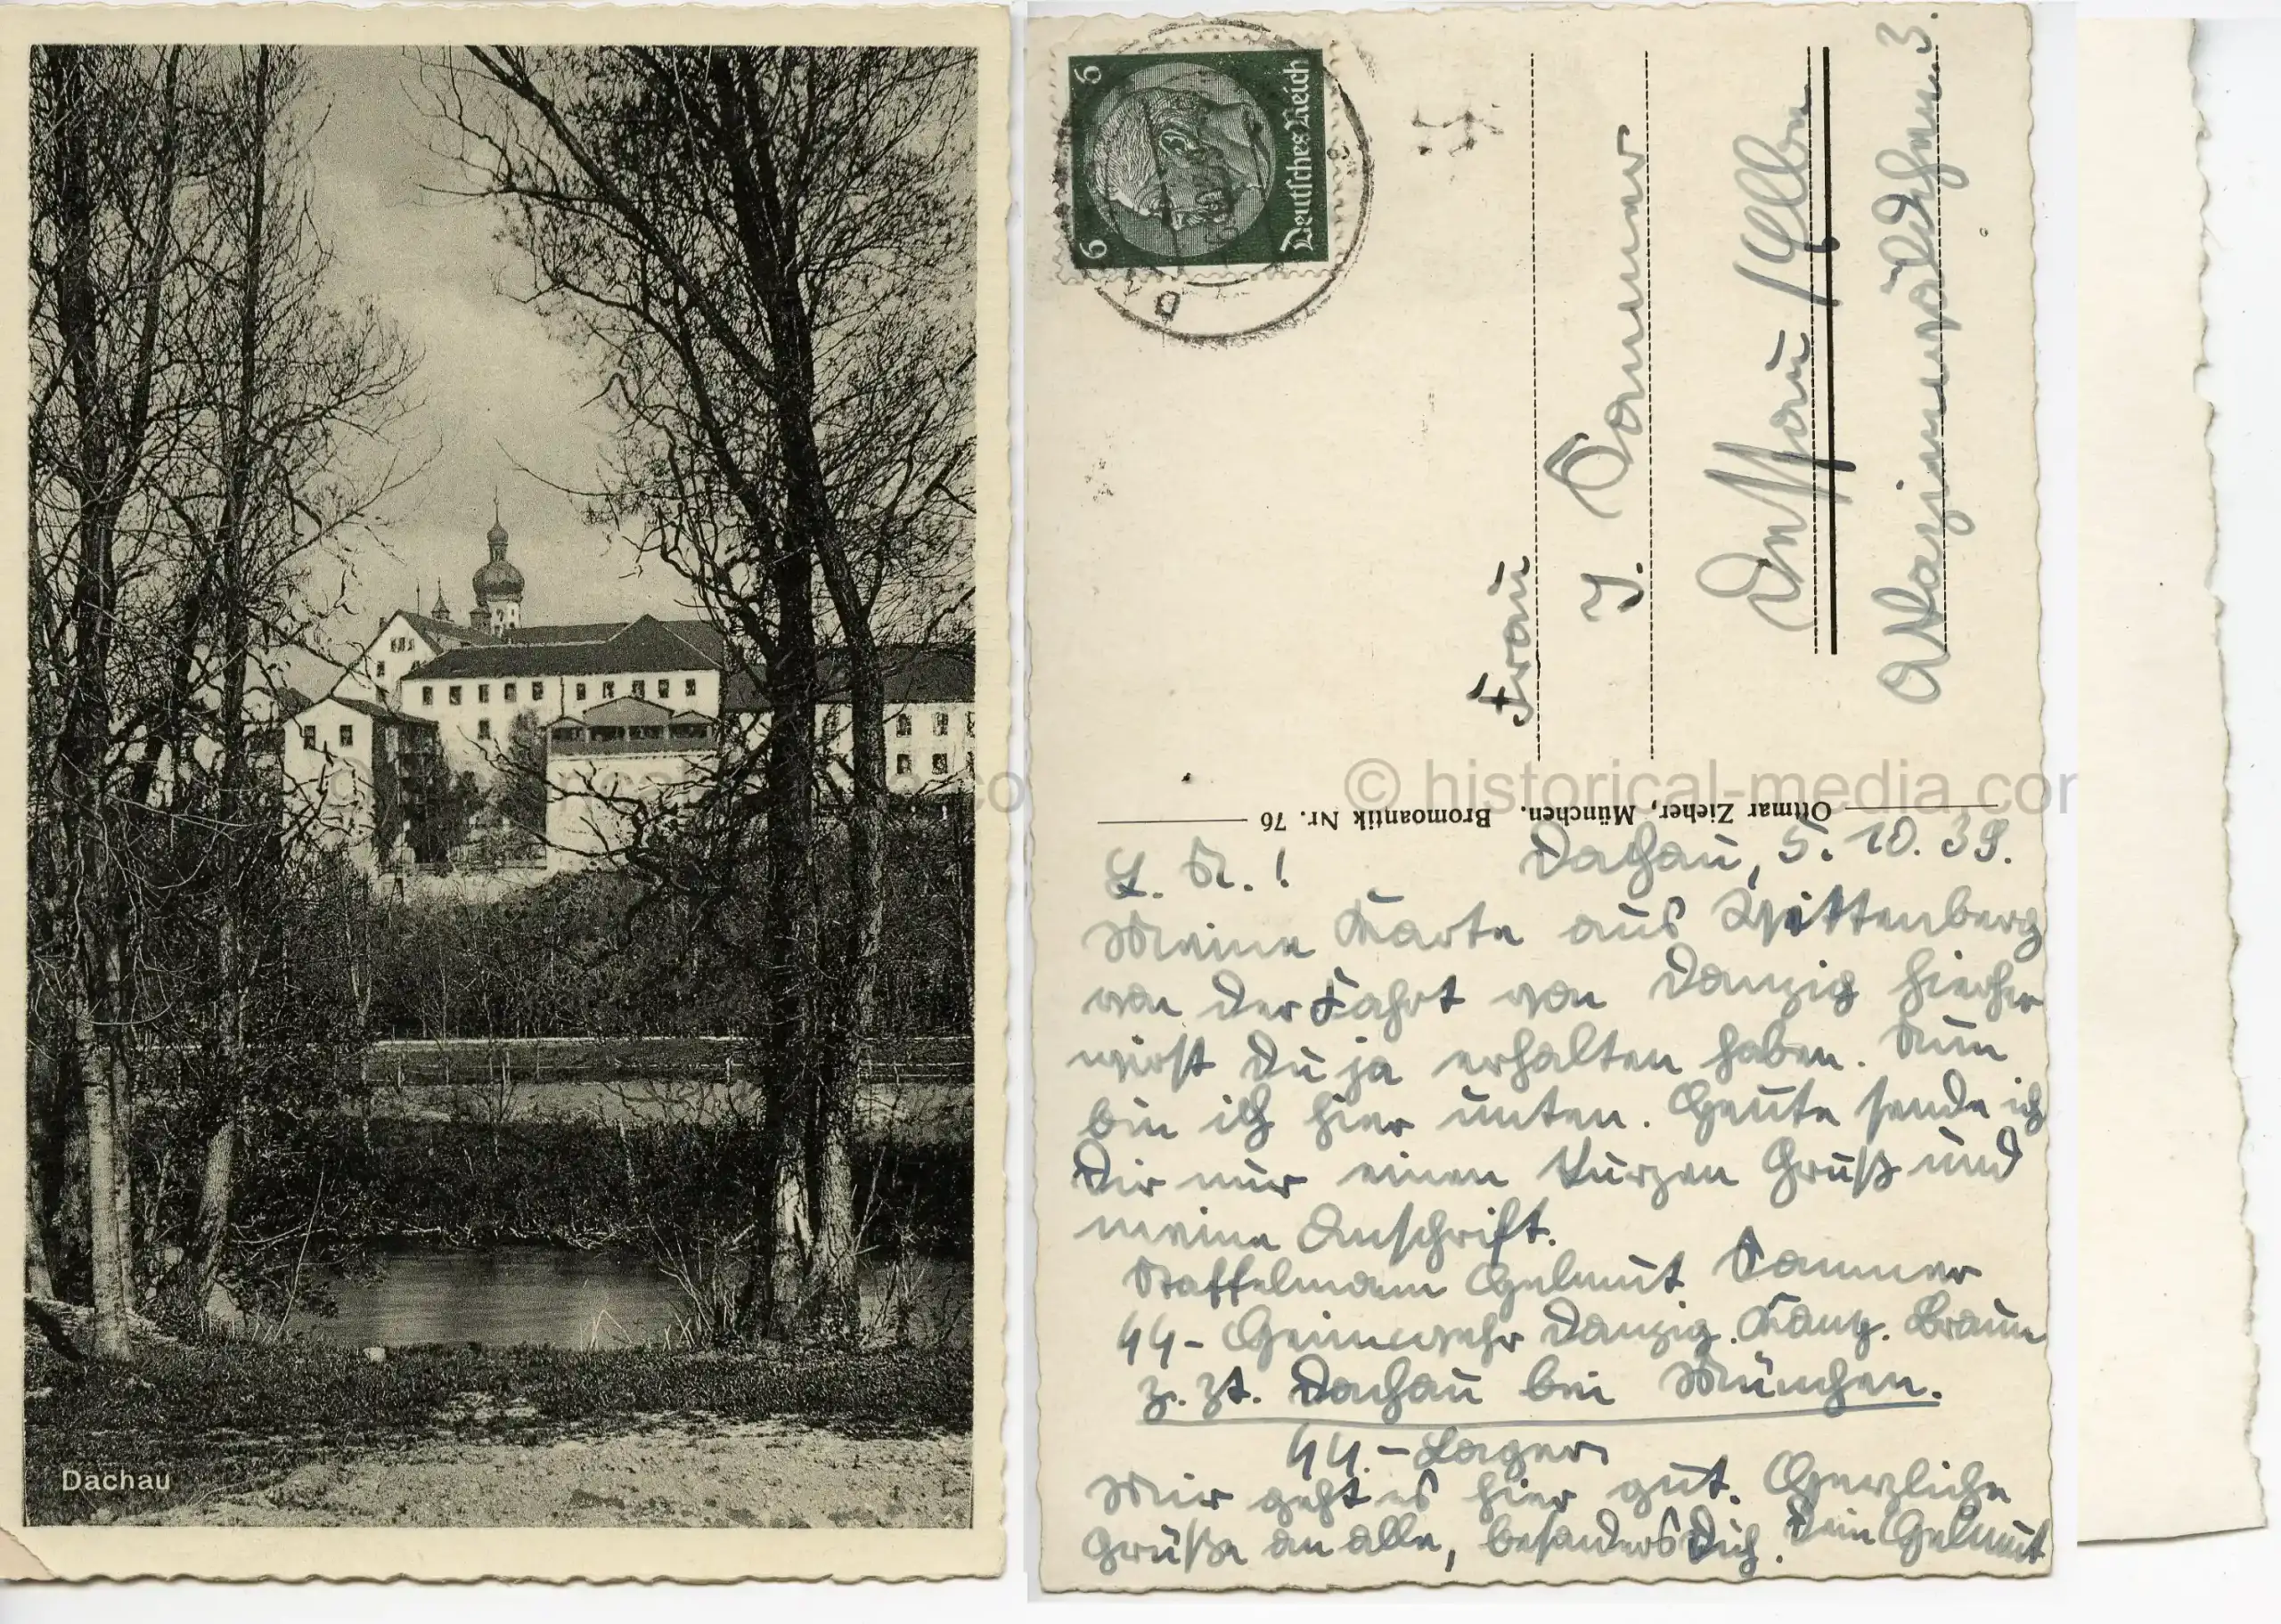 Dachau
6 6
Deutsches Reich
Frau
J. Dammer
Dessau / Elbe
© historical-media.com
Ottmar Zieher, München. Bromoantik Nr. 76
Dachau, 5. 10. 39.
Meine Karte aus Wittenberg
von der Fahrt von Danzig hierher
wirst Du ja erhalten haben. Nun
bin ich hier unten. Heute sende ich
Dir nur einen kurzen Gruß und
meine Anschrift.
Staffelmann Helmut Dammer
SS-Heimwehr Danzig. Braun
z. Zt. Dachau bei München.
SS.-Lager
Mir geht es hier gut. Herzliche
Grüße an alle, besonders Dich. Dein Helmut